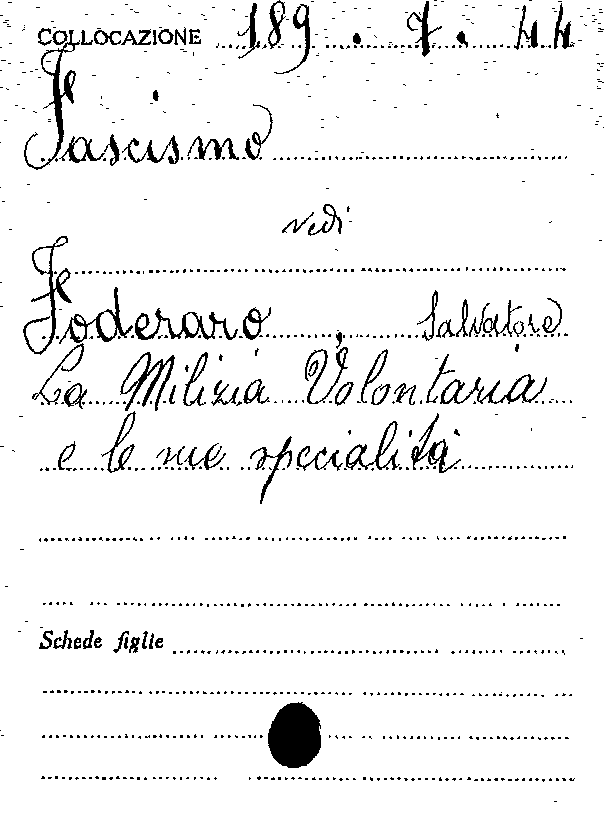 COLLOCAZIONE 189 . 7 . 44
Fascismo
vedi
Foderaro , Salvatore
La Milizia Volontaria
e le sue specialità
Schede figlie